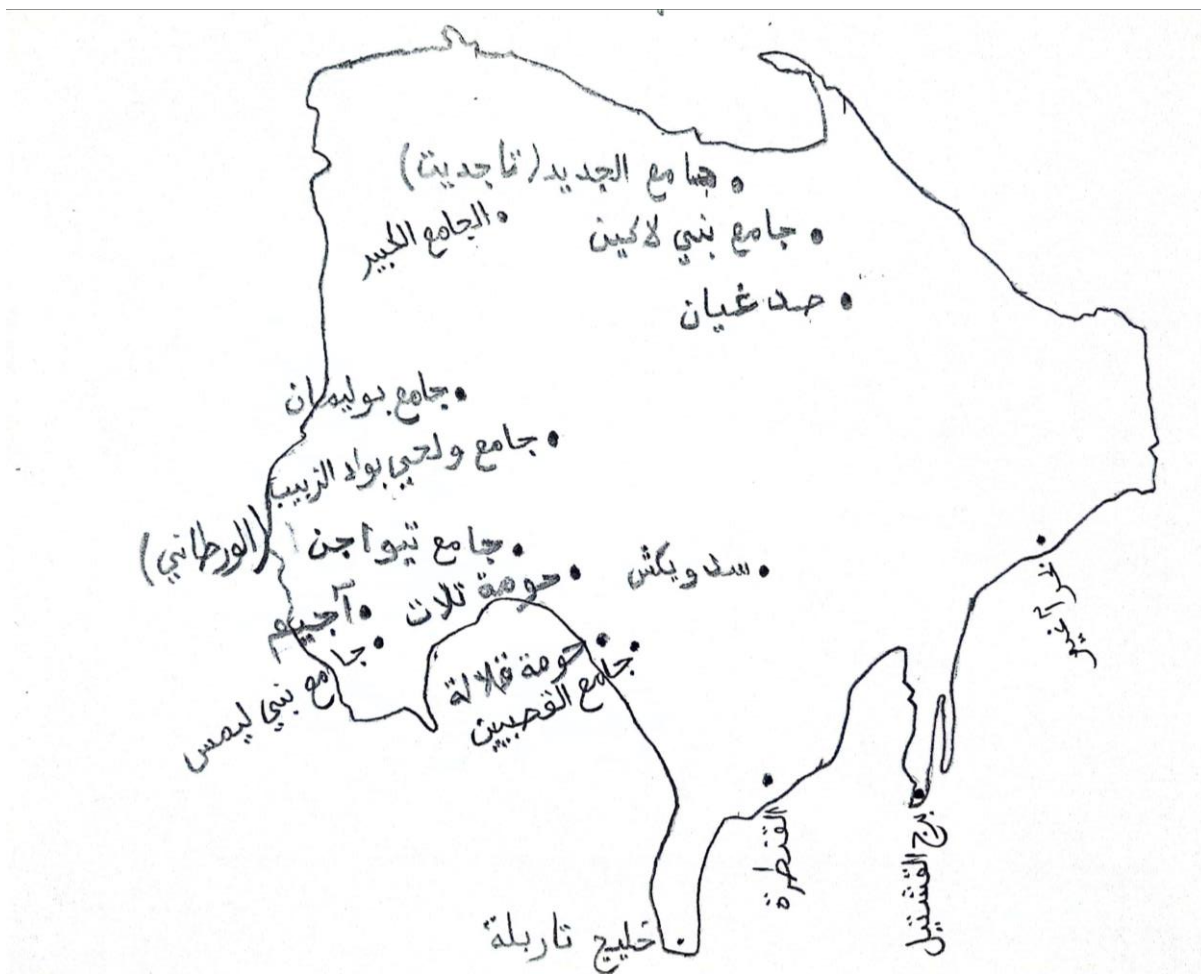 جامع الجديد (تاجديت)
الجامع الكبير
جامع بني لاكين
صدغيان
جامع بوليمان
جامع ولحي بواد الزبيب
جامع تيواجن (الورطاني)
سدويكش
حومة تلات
آجيم
جامع بني ليمس
حومة قلالة
جامع القصبيين
القنطرة
برج القشتيل
خليج تاربلة